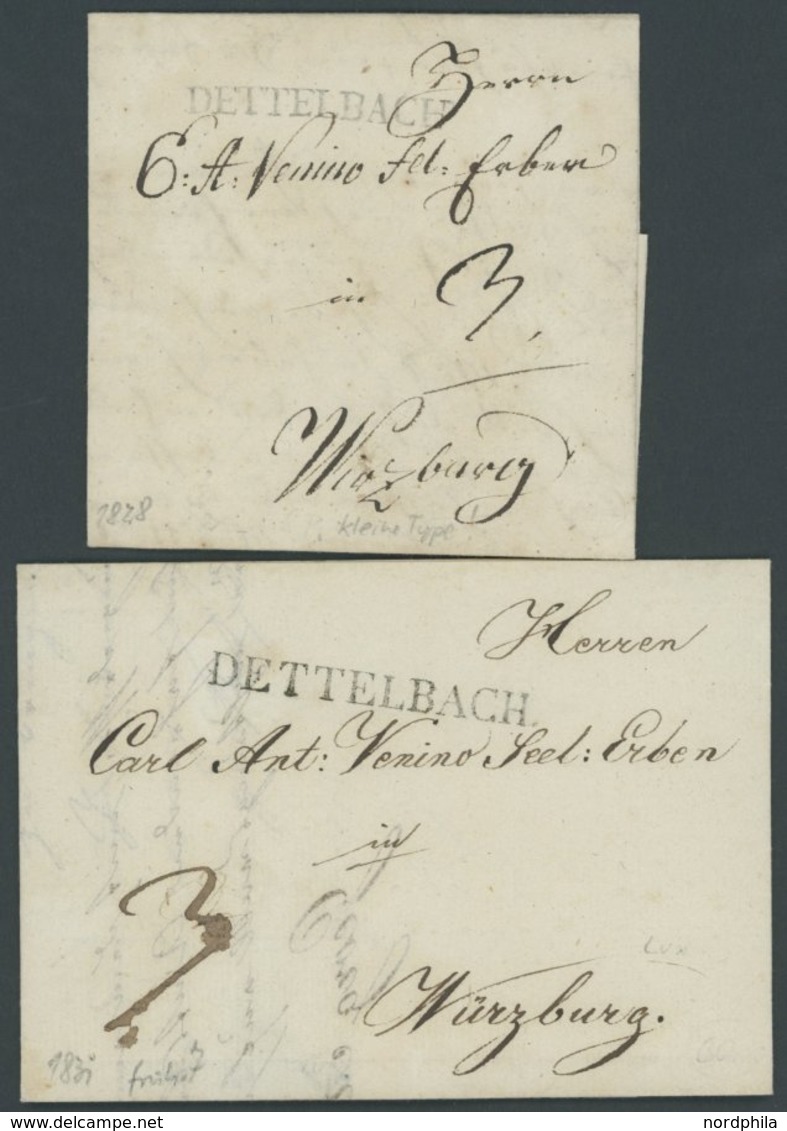 Herrn
DETTELBACH
C: A: Venino sel: Erben
in 3
Wirzburg
1828 kleine Type!
Herren
DETTELBACH.
Carl Ant: Venino Seel: Erben
in
3
Würzburg.
Lux
1831
www.delcampe.net
nordphila